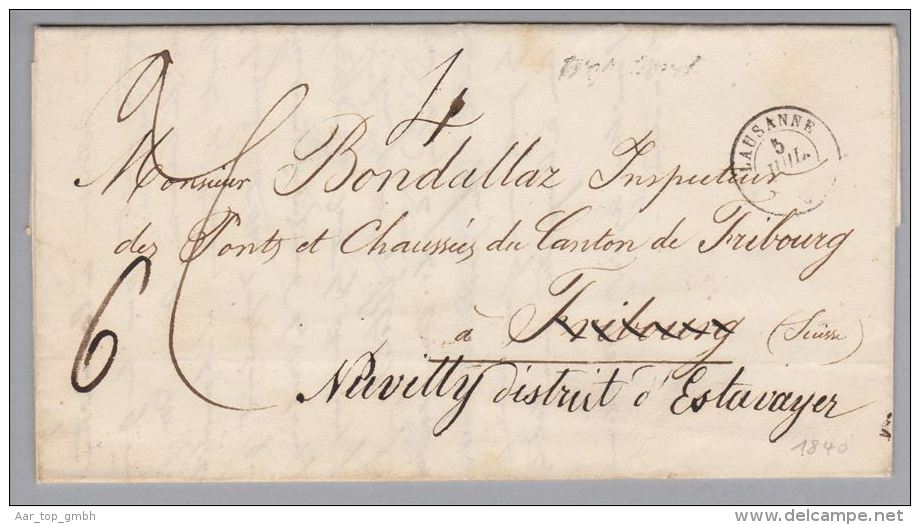 4
LAUSANNE
5
JUIL.
Monsieur Bondallaz Inspecteur
des Ponts et Chaussées du Canton de Fribourg
6
à Fribourg (Suisse)
Nuvilly district d'Estavayer
1840
Aar_top_gmbh
www.delcampe.net